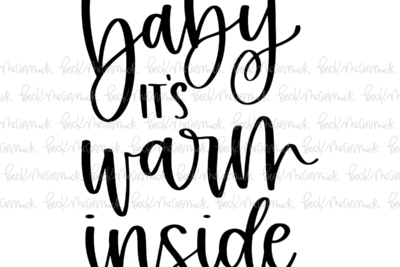 baby
IT'S
warm
inside